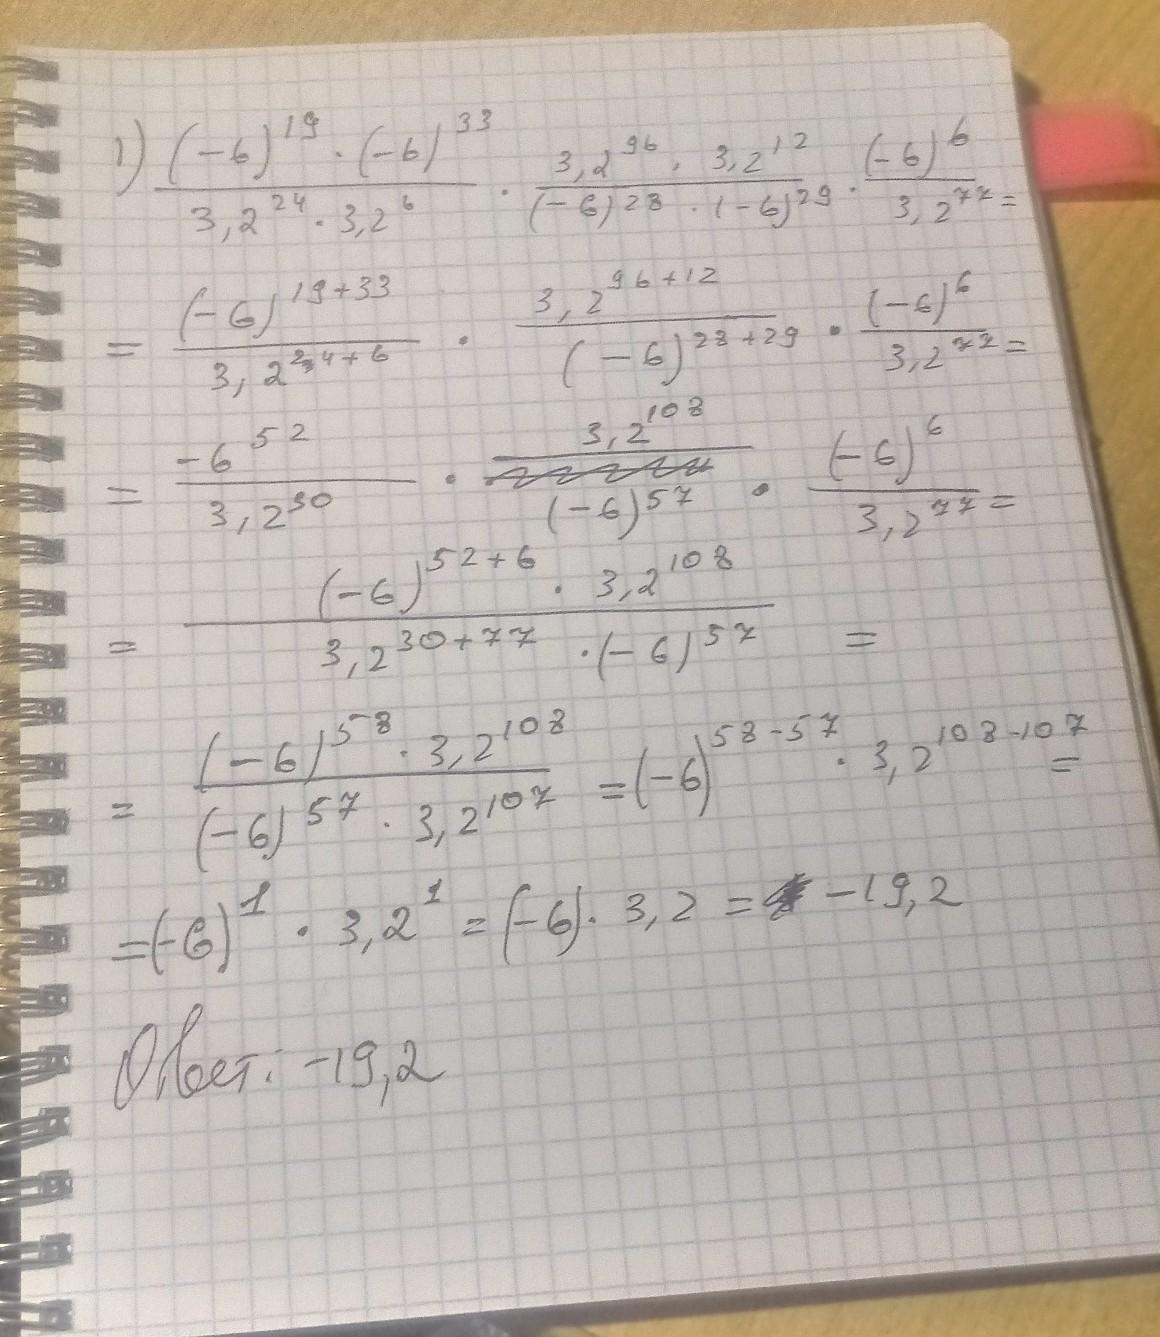 1) (-6)^19 · (-6)^33 / 3,2^24 · 3,2^6 · 3,2^96 · 3,2^12 / (-6)^28 · (-6)^29 · (-6)^6 / 3,2^77 =
= (-6)^19+33 / 3,2^24+6 · 3,2^96+12 / (-6)^28+29 · (-6)^6 / 3,2^77 =
= -6^52 / 3,2^30 · 3,2^108 / (-6)^57 · (-6)^6 / 3,2^77 =
= (-6)^52+6 · 3,2^108 / 3,2^30+77 · (-6)^57 =
= (-6)^58 · 3,2^108 / (-6)^57 · 3,2^107 = (-6)^58-57 · 3,2^108-107 =
= (-6)^1 · 3,2^1 = (-6) · 3,2 = -19,2
Ответ: -19,2